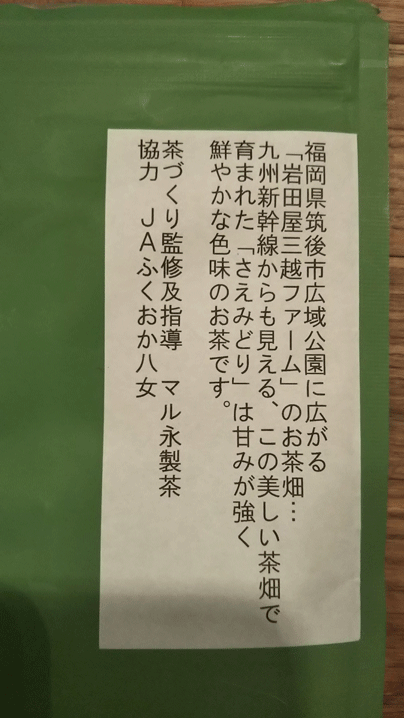 福岡県筑後市広域公園に広がる
「岩田屋三越ファーム」のお茶畑…
九州新幹線からも見える、この美しい茶畑で
育まれた「さえみどり」は甘みが強く
鮮やかな色味のお茶です。
茶づくり監修及指導　マル永製茶
協力　ＪＡふくおか八女